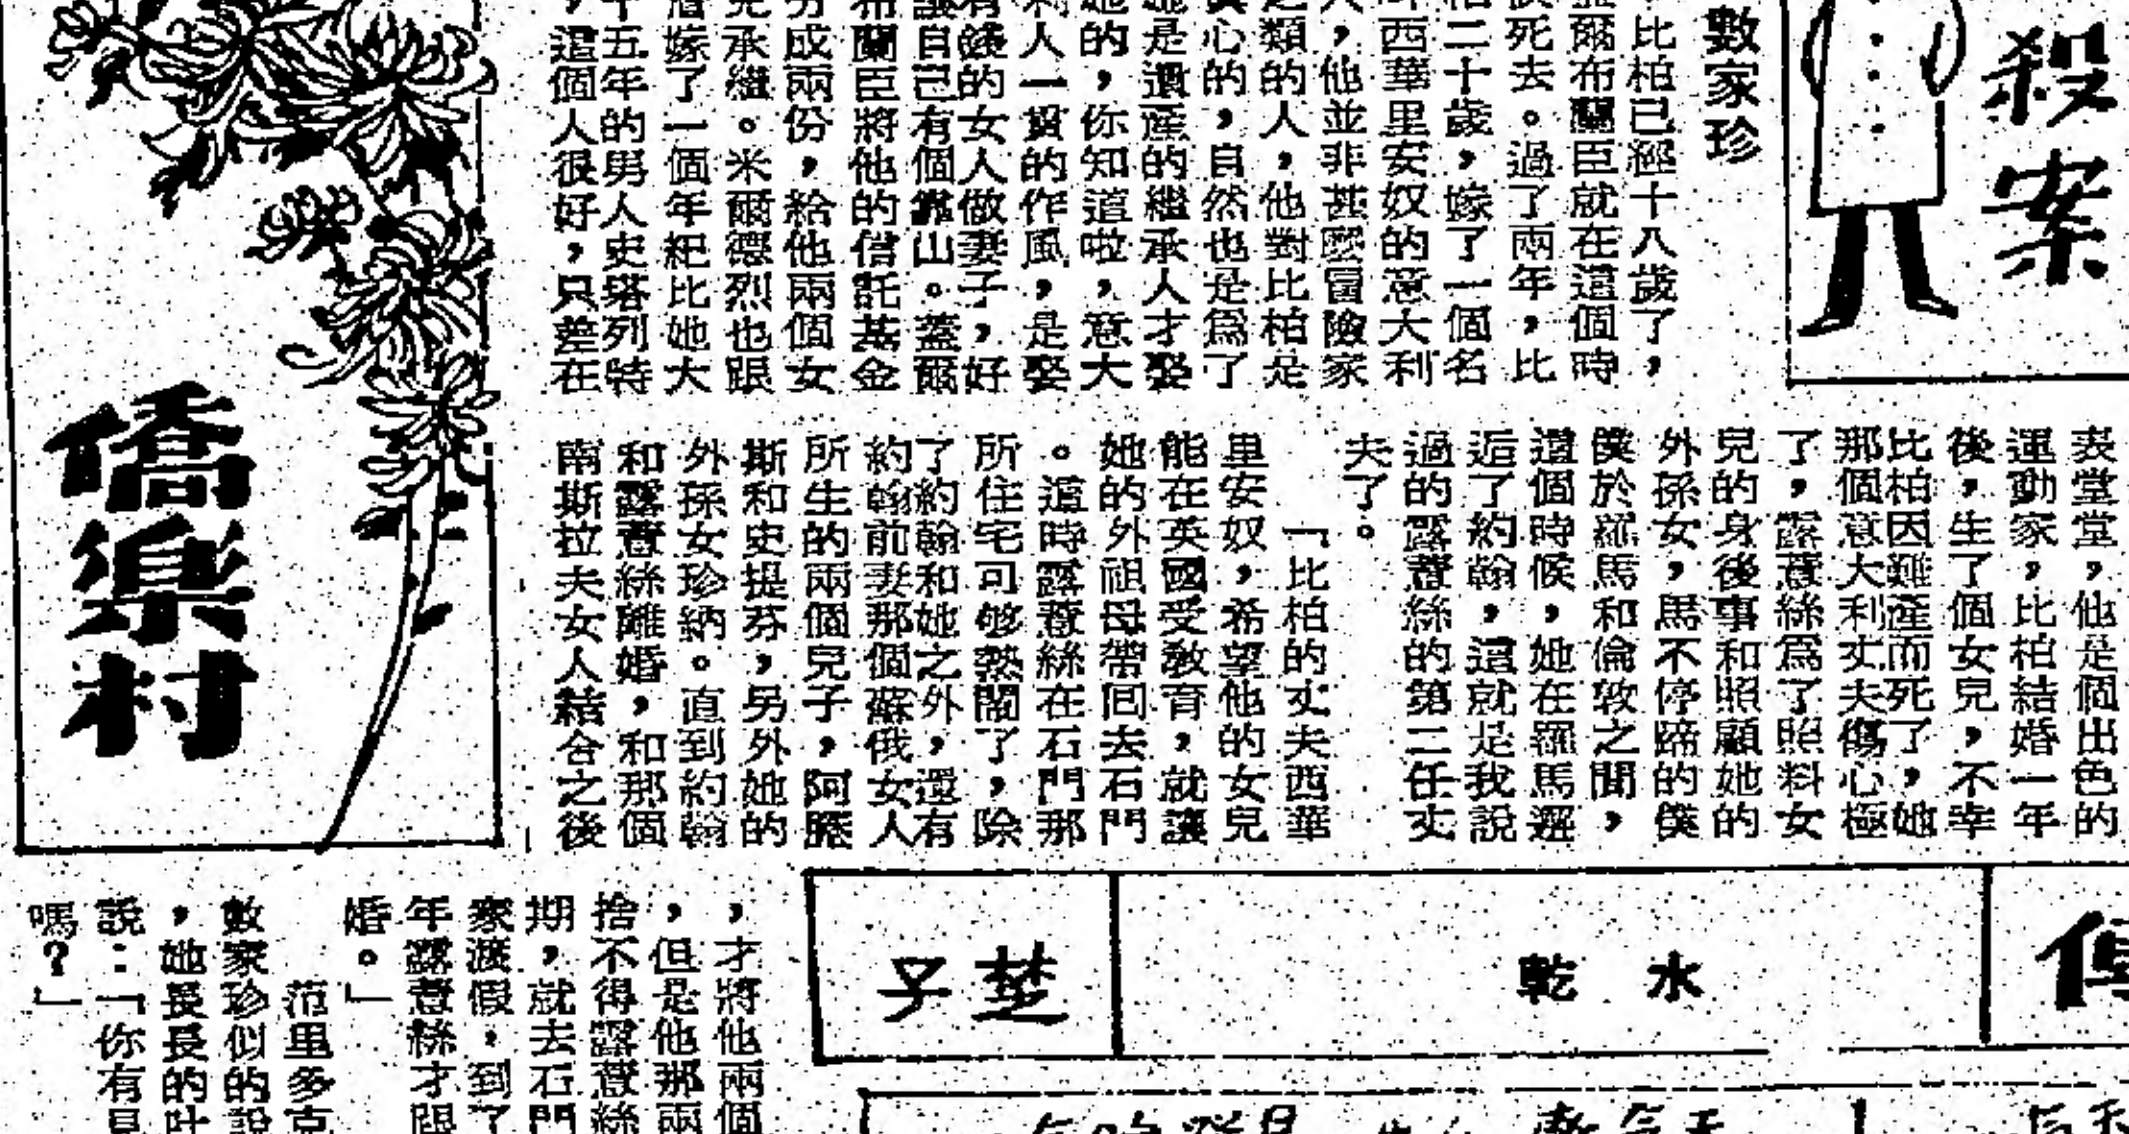 殺案
數家珍
比柏已經十八歲了，
爾布蘭臣就在這個時
死去。過了兩年，比
二十歲，嫁了一個名
西華里安奴的意大利
，他並非甚麼冒險家
類的人，他對比柏是
心的，自然也是爲了
是遺產的繼承人才娶
的，你知道啦，意大
人一貫的作風，是娶
有錢的女人做妻子，好
讓自己有個靠山。蓋爾
布蘭臣將他的信託基金
分成兩份，給他兩個女
兒承繼。米爾德烈也跟
嫁了一個年紀比她大
十五年的男人史塔列特
，這個人很好，只差在
表堂堂，他是個出色的
運動家，比柏結婚一年
後，生了個女兒，不幸
比柏因難產而死了，她
那個意大利丈夫傷心極
了，露薏絲爲了照料女
兒的身後事和照顧她的
外孫女，馬不停蹄的僕
僕於羅馬和倫敦之間，
這個時候，她在羅馬邂
逅了約翰，這就是我說
過的露薏絲的第二任丈
夫了。
「比柏的丈夫西華
里安奴，希望他的女兒
能在英國受敎育，就讓
她的外祖母帶回去石門
。這時露薏絲在石門那
所住宅可够熱鬧了，除
了約翰和她之外，還有
約翰前妻那個蘇俄女人
所生的兩個兒子，阿歷
斯和史提芬，另外她的
外孫女珍納。直到約翰
和露薏絲離婚，和那個
南斯拉夫女人結合之後
，才將他兩個
，但是他那兩
捨不得露薏絲
期，就去石門
家渡假，到了
年露薏絲才跟
婚。」
范里多克
數家珍似的說
，她長長的吐
說：「你有見
嗎？」
僑樂村
水乾
楚子